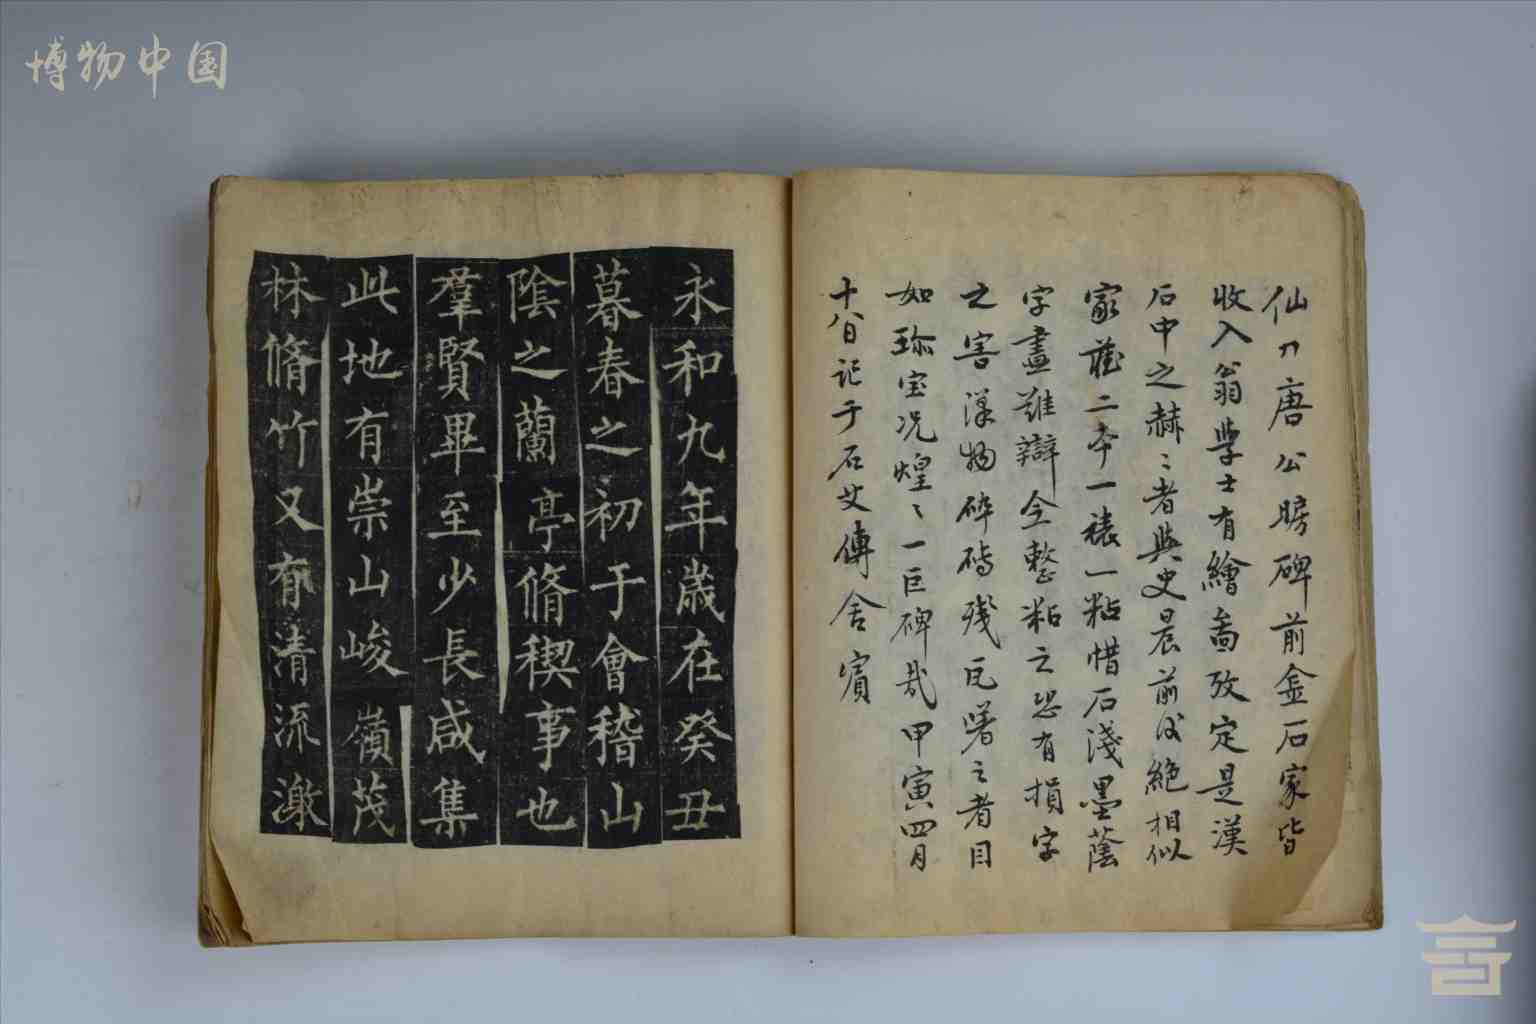 博物中国
仙刀唐公房碑前金石家皆
收入翁学士有繪圖攷定是漢
石中之赫〻者與史晨前後絶相似
家蔵二本一裱一粘惜石淺墨蔭
字畫難辯今整粘之恐有損字
之害漢物碎磚殘瓦署之者目
如珎宝况煌〻一巨碑哉甲寅四月
十八日記于石艾傅舍寅
永和九年歳在癸丑
暮春之初于會稽山
陰之蘭亭脩稧事也
羣賢畢至少長咸集
此地有崇山峻嶺茂
林脩竹又有清流激